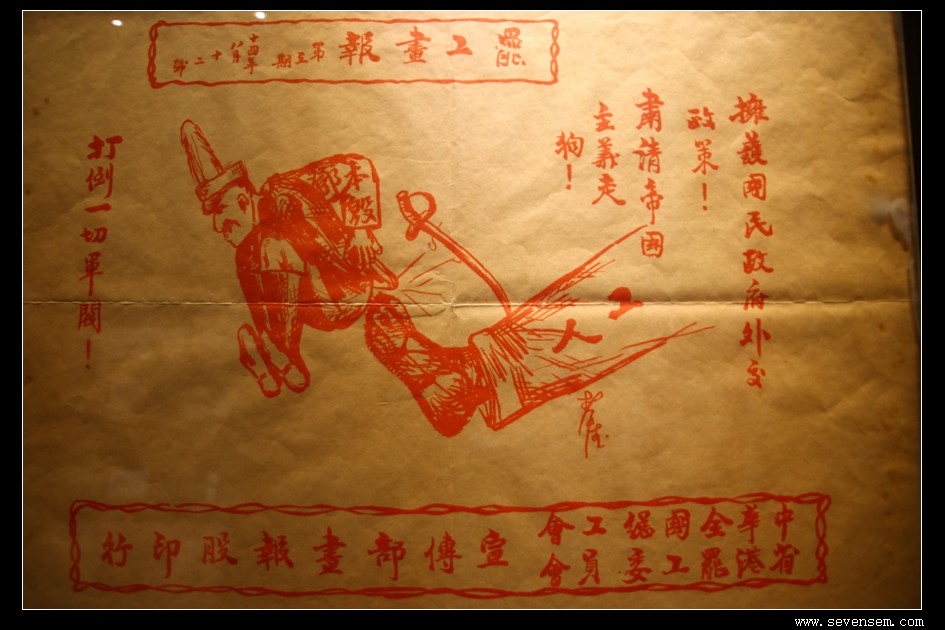 罷工畫報第五期十四年八月十二號
擁護國民政府外交
政策！
肅清帝國
主義走
狗！
工人
打倒一切軍閥！
中華全國總工會
省港罷工委員會
宣傳部畫報股印行
www.sevensem.com